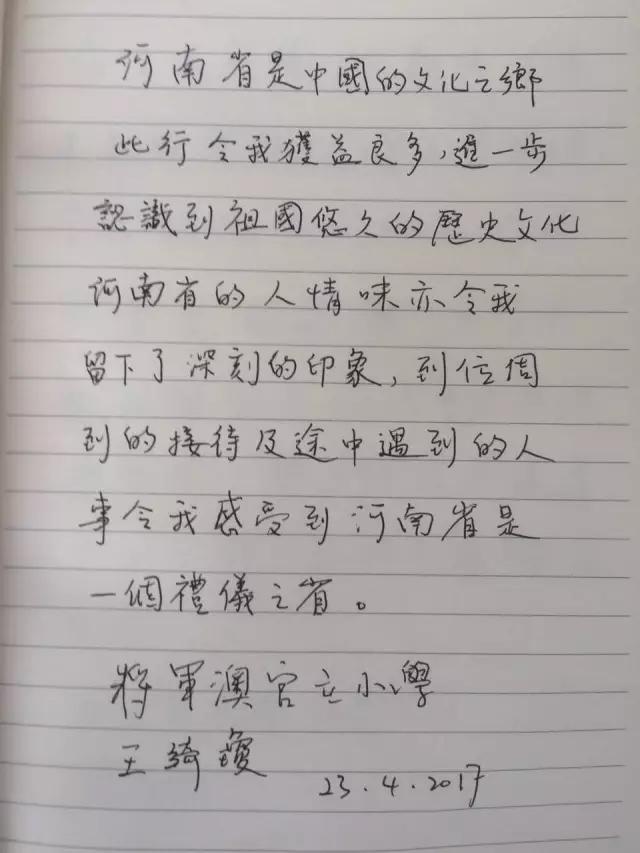 河南省是中國的文化之鄉
此行令我獲益良多,進一步
認識到祖國悠久的歷史文化
河南省的人情味亦令我
留下了深刻的印象,到位周
到的接待及途中遇到的人
事令我感受到河南省是
一個禮儀之省。
將軍澳官立小學
王綺瓊
23.4.2017